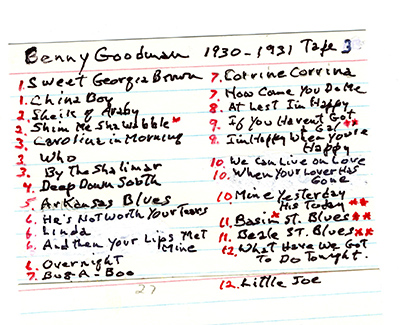 Benny Goodman 1930-1931 Tape 3
1. Sweet Georgia Brown
1. China Boy
2. Sheik of Araby
2. Shim Me Sha Wabble*
3. Carolina in Morning
3. Who
3. By The Shalimar
4. Deep Down South
5. Arkansas Blues
6. He's Not Worth Your Tears
6. Linda
6. And then Your Lips Met
Mine
6. Overnight
7. Bug A Boo
7. Corrine Corrina
7. How Come You Do Me
8. At Last I'm Happy
9. If You Haven't Got
a Gal **
9. I'm Happy When You're
Happy
10. We Can Live on Love
10. When Your Lover Has
Gone
10 Mine Yesterday
His Today **
11. Basin St. Blues **
11. Beale ST. Blues **
12. What Have We Got
To Do Tonight.
12. Little Joe
27